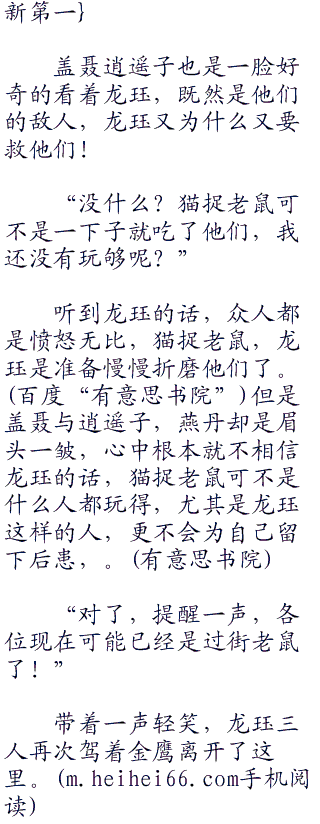 新第一}
盖聂逍遥子也是一脸好
奇的看着龙珏，既然是他们
的敌人，龙珏又为什么又要
救他们！
“没什么？猫捉老鼠可
不是一下子就吃了他们，我
还没有玩够呢？”
听到龙珏的话，众人都
是愤怒无比，猫捉老鼠，龙
珏是准备慢慢折磨他们了。
(百度“有意思书院”)但是
盖聂与逍遥子，燕丹却是眉
头一皱，心中根本就不相信
龙珏的话，猫捉老鼠可不是
什么人都玩得，尤其是龙珏
这样的人，更不会为自己留
下后患，。(有意思书院)
“对了，提醒一声，各
位现在可能已经是过街老鼠
了！”
带着一声轻笑，龙珏三
人再次驾着金鹰离开了这
里。(m.heihei66.com手机阅
读)